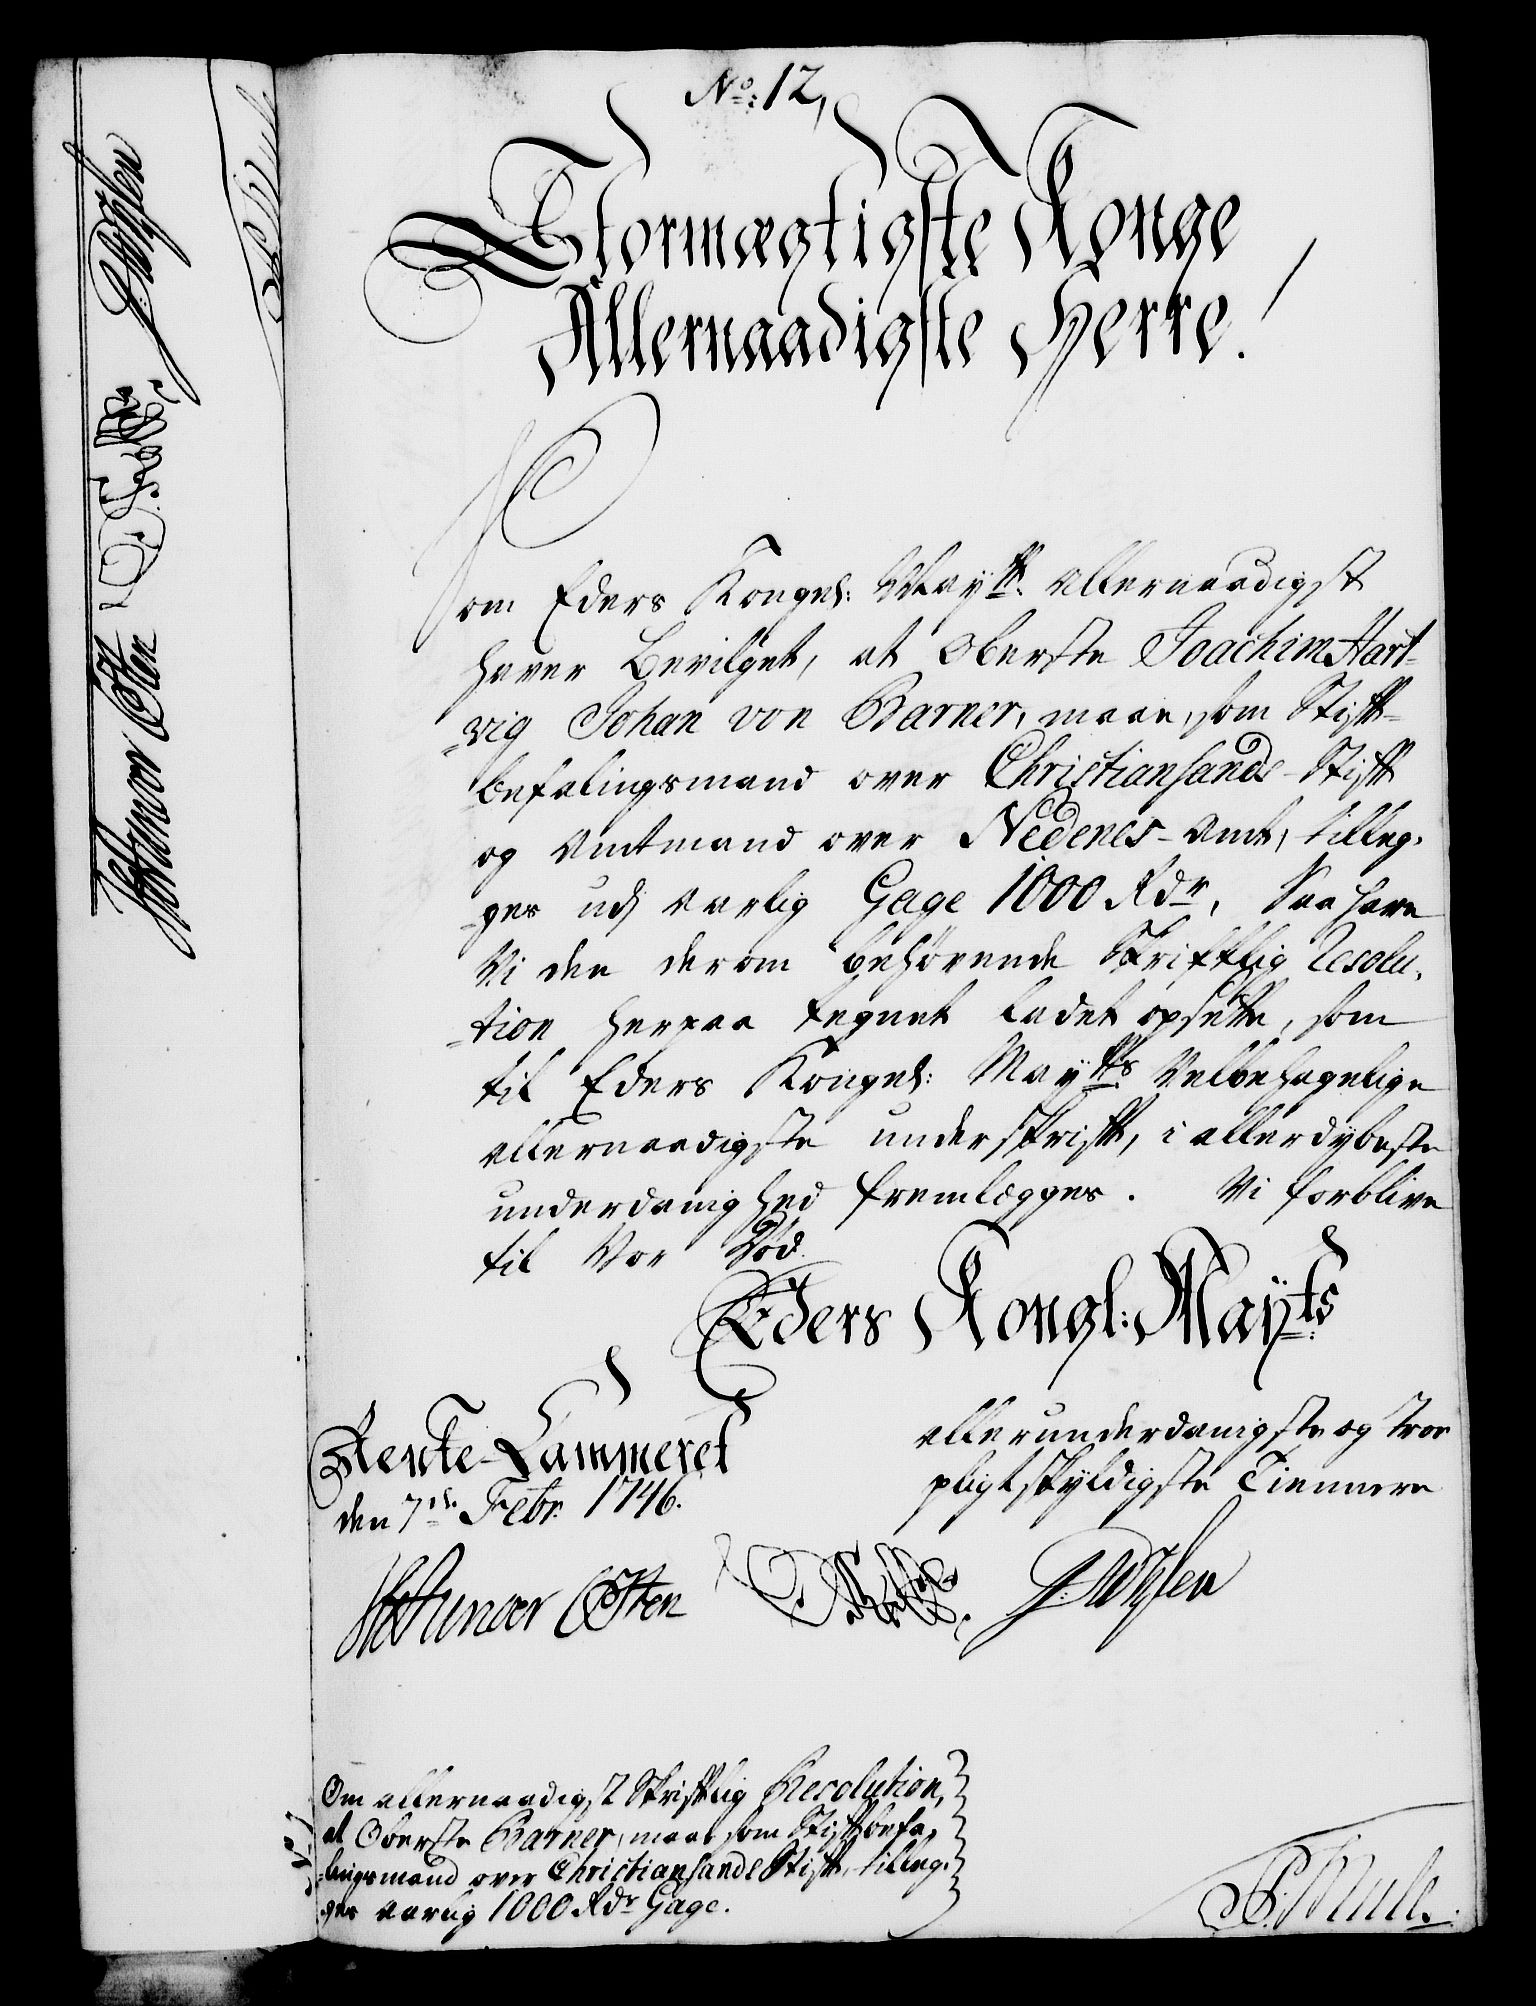 No: 12,
Stormægtigste Konge
Allernaadigste Herre!
Som Eders Kongel: Mayts: allernaadigst
haver bevilget, at Oberste Joachim Hart-
vig Johan von Barner, maae, som Stift-
befalingsmand over Christiansands-Stift
og Amtmand over Nedenes-Amt, tilleg-
ges udj aarlig Gage 1000 Rdr, Saa have
Vi den derom behørende Skriftlig Resolu-
tion herpaa tegnet ladet opsette, som
til Eders Kongel: Mayts Velbehagelige
allernaadigste underskrift, i allerdybeste
underdanighed fremlægges. Vi forblive
til Vor Død
Eders Kongl: Mayts
Rente-Cammeret
den 7de Febr: 1746.
allerunderdanigste og troe
pligtskyldigste Tiennere
Osten
Om allernaadigst Skriftlig Resolution,
at Oberste Barner, maae som Stiftbefa-
lingsmand over Christiansands Stift, tilleg-
ges aarlig 1000 Rdr Gage.
P. Mule.